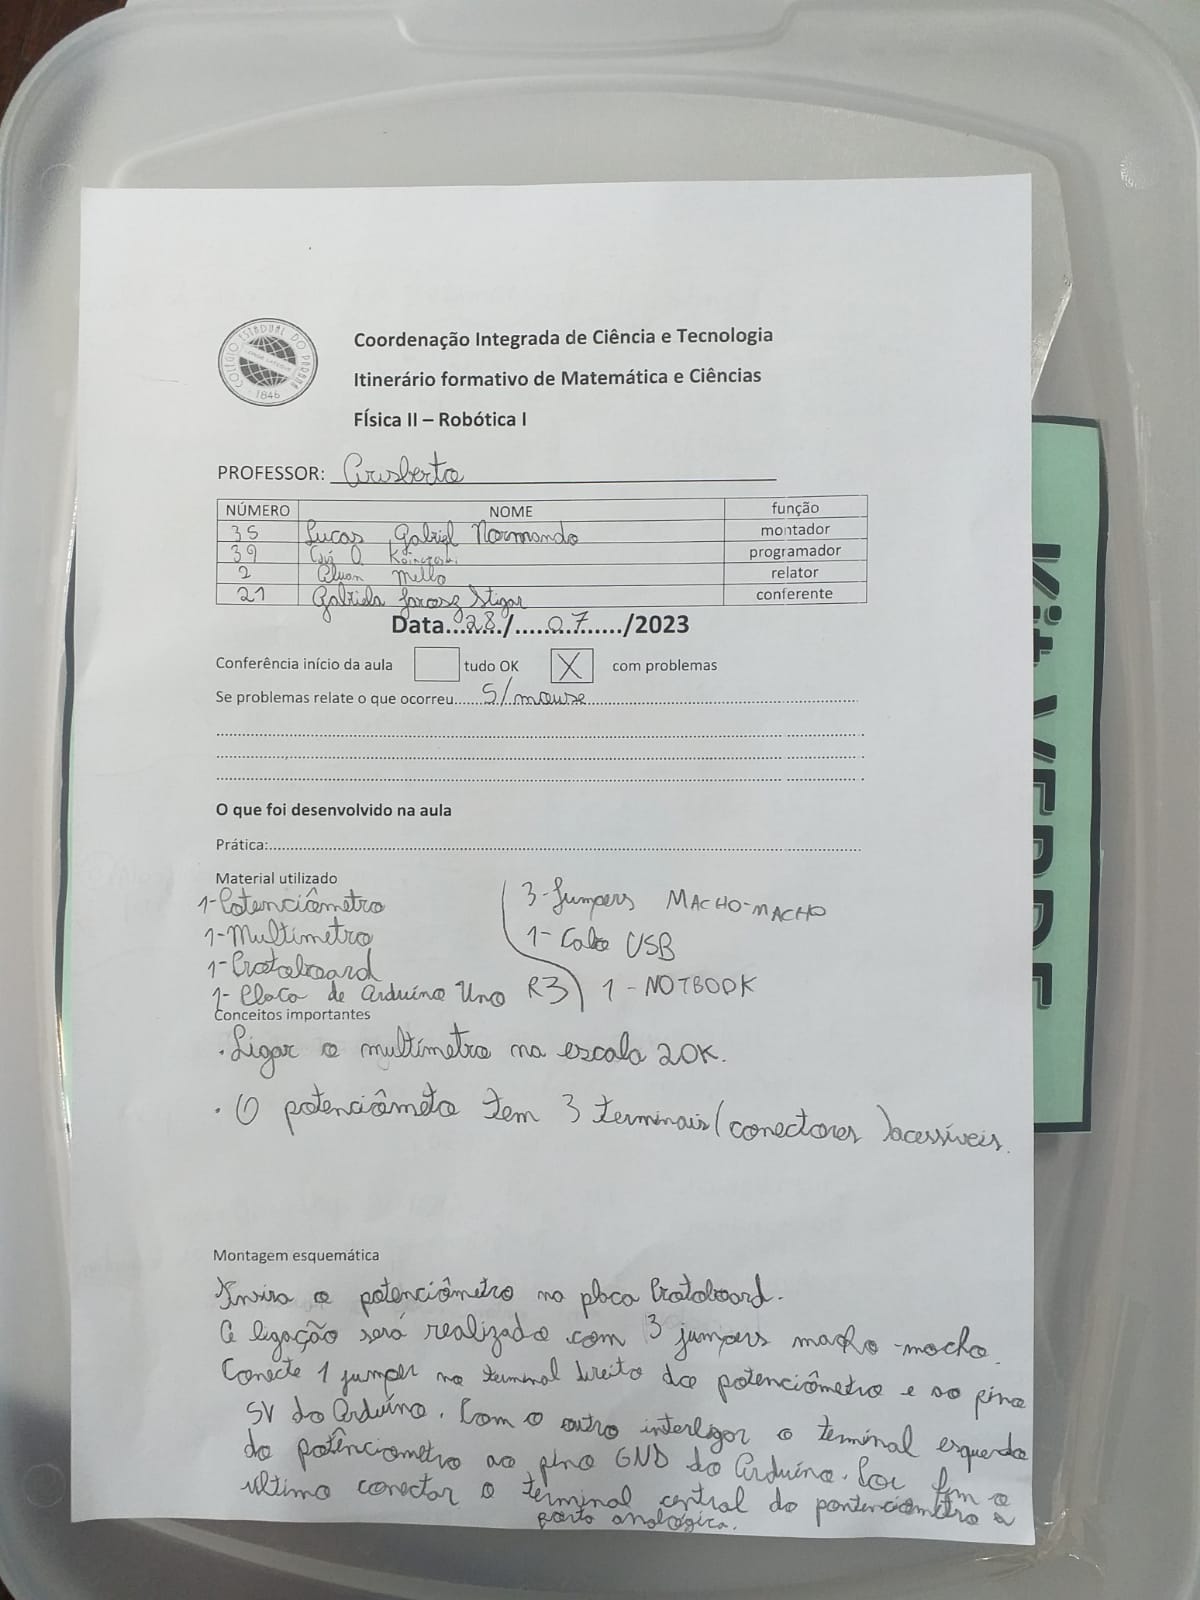 COLÉGIO ESTADUAL DO PARANÁ
1846
Coordenação Integrada de Ciência e Tecnologia
Itinerário formativo de Matemática e Ciências
FÍsica II – Robótica I
PROFESSOR: Arisberto
NÚMERO NOME função
35 Lucas Gabriel Normando montador
39 programador
2 Mello relator
21 Gabriela Stigar conferente
Data...28./......07....../2023
Conferência início da aula tudo OK X com problemas
Se problemas relate o que ocorreu......S/mouse
O que foi desenvolvido na aula
Prática:
Material utilizado
1-Potenciômetro 3-Jumpers MACHO-MACHO
1-Multímetro 1- Cabo USB
1-Protoboard
1- Placa de Arduíno Uno R3 1 - NOTBOOK
Conceitos importantes
. Ligar o multímetro na escala 20K.
. O potenciâmeto tem 3 terminais (conectores) acessíveis.
Montagem esquemática
Insira o potenciômetro na placa Protoboard.
A ligação será realizada com 3 jumpers macho-macho.
Conecte 1 jumper no terminal direito do potenciômetro e ao pino
5V do Arduíno. Com o outro interligar o terminal esquerdo
do potênciometro ao pino GND do Arduíno. Por fim o
ultimo conectar o terminal central do pontenciômetro a
porta analógica.
Kit VERDE